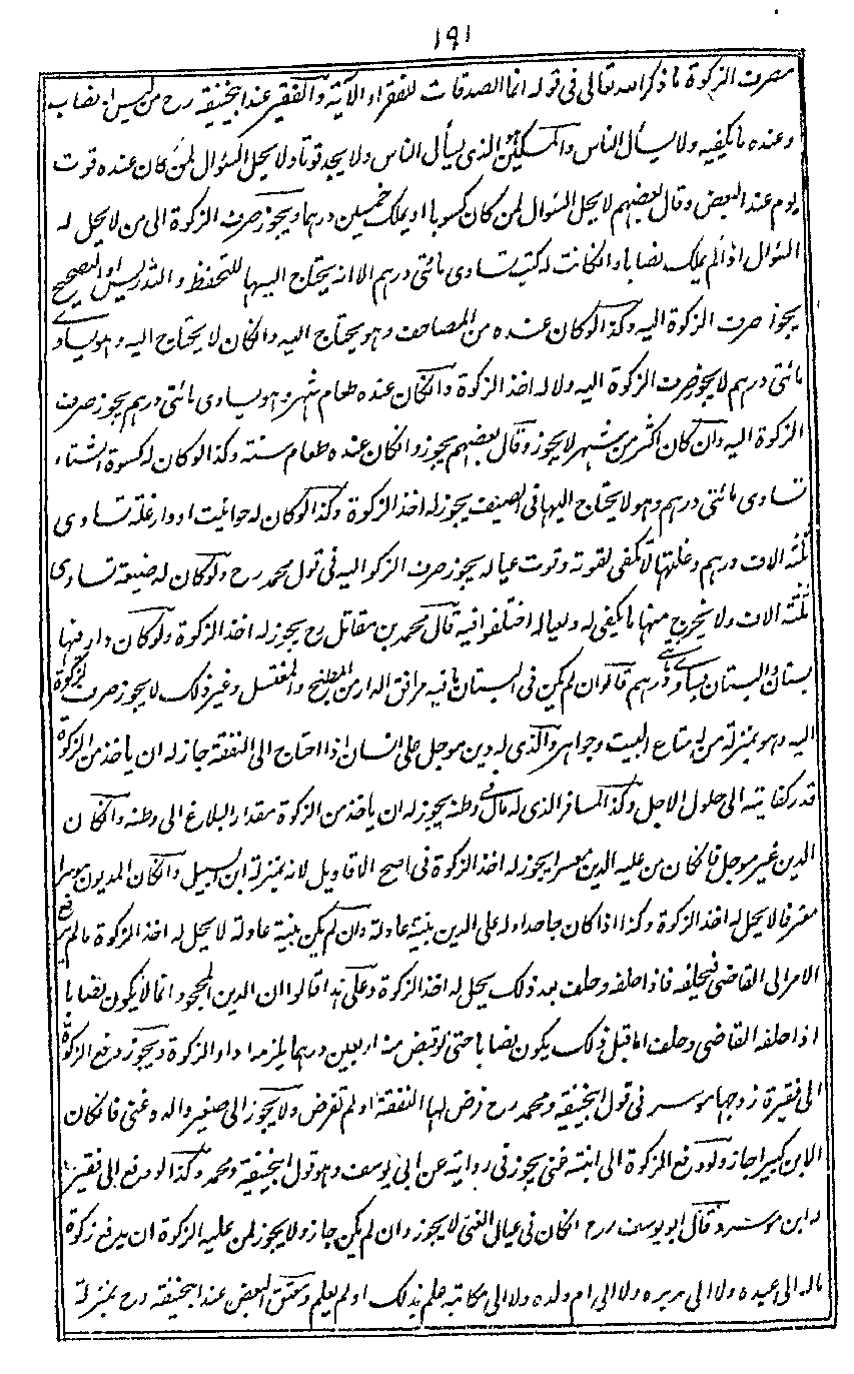 ١٩١
مصرف الزكوة ما ذكر الله تعالى فى قوله انما الصدقات للفقراء الآية والفقير عند ابيحنيفة رح من ليس له نصاب
وعنده ما يكفيه ولا يسأل الناس والمسكين هو الذى يسأل الناس ولا يجد قوتا ولا يحل السؤال لمن كان عنده قوت
يوم عند البعض وقال بعضهم لا يحل السؤال لمن كان كسوبا او يملك خمسين درهما ويجوز صرف الزكوة الى من لا يحل له
السؤال اذا لم يملك نصابا وان كانت له كتب تساوى مائتى درهم الا انه يحتاج اليها للتحفظ والتدريس او التصحيح
يجوز صرف الزكوة اليه وكذا لو كان عنده من المصاحف وهو يحتاج اليه وانكان لا يحتاج اليه وهو يساوى
مائتى درهم لا يجوز صرف الزكوة اليه ولا له اخذ الزكوة وانكان عنده طعام شهر وهو يساوى مائتى درهم يجوز صرف
الزكوة اليه وان كان اكثر من شهر لا يجوز وقال بعضهم يجوز وانكان عنده طعام سنة وكذا لو كان له كسوة الشتاء
تساوى مائتى درهم وهو لا يحتاج اليها فى الصيف يجوز له اخذ الزكوة وكذا لوكان له حوانيت او دار غلة تساوى
ثلثة الاف درهم وغلتها لا تكفى لقوته وقوت عياله يجوز صرف الزكوة اليه فى قول محمد رح ولو كان له ضيعة تساوى
ثلثة الاف ولا يخرج منها ما يكفى له ولعياله اختلفوا فيه قال محمد بن مقاتل رح يجوز له اخذ الزكوة ولو كان له دار فيها
بستان والبستان يساوى مائتى درهم قالوا ان لم يكن فى البستان ما فيه مرافق الدار من المطبخ والمغتسل وغير ذلك لا يجوز صرف الزكوة
اليه وهو بمنزلة من له متاع البيت وجواهر والذى له دين موجل على انسان اذا احتاج الى النفقة جاز له ان ياخذ من الزكوة
قدر كفايته الى حلول الاجل وكذا المسافر الذى له مال فى وطنه يجوز له ان ياخذ من الزكوة مقدار البلاغ الى وطنه وانكان
الدين غير موجل فان كان من عليه الدين معسرا يجوز له اخذ الزكوة فى اصح الاقاويل لانه بمنزلة ابن السبيل وانكان المديون موسرا
معترفا لا يحل له اخذ الزكوة وكذا اذا كان جاحدا وله على الدين بينة عادلة وان لم يكن بينة عادلة لا يحل له اخذ الزكوة ما لم يرفع
الامر الى القاضى فيحلفه فاذا حلفه وحلف بعد ذلك يحل له اخذ الزكوة وعلى هذا قالوا ان الدين المجحود انما لا يكون نصابا
اذا حلفه القاضى وحلف اما قبل ذلك يكون نصابا حتى لو قبض منه اربعين درهما يلزمه اداء الزكوة ويجوز دفع الزكوة
الى فقيرة زوجها موسر فى قول ابيحنيفة ومحمد رح فرض لها النفقة او لم تفرض ولا يجوز الى صغير والده غنى فانكان
الابن كبيرا جاز ولو دفع الزكوة الى ابنته غنى يجوز فى رواية عن ابى يوسف وهو قول ابيحنيفة ومحمد وكذا لو دفع الى فقير
له ابن موسر وقال ابو يوسف رح انكان فى عيال الغنى لا يجوز وان لم يكن جاز ولا يجوز لمن عليه الزكوة ان يدفع زكوة
ماله الى عبده ولا الى مدبره ولا الى ام ولده ولا الى مكاتبه علم بذلك او لم يعلم ومعتق البعض عند ابيحنيفة رح بمنزلة